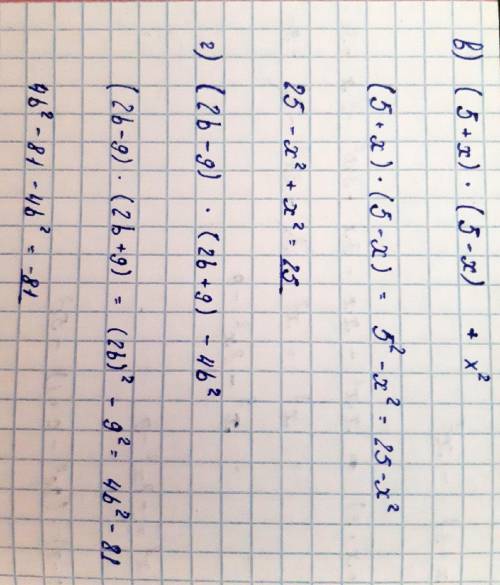 в) (5+x) · (5-x) + x²
(5+x) · (5-x) = 5² - x² = 25 - x²
25 - x² + x² = 25
г) (2b-9) · (2b+9) - 4b²
(2b-9) · (2b+9) = (2b)² - 9² = 4b² - 81
4b² - 81 - 4b² = -81